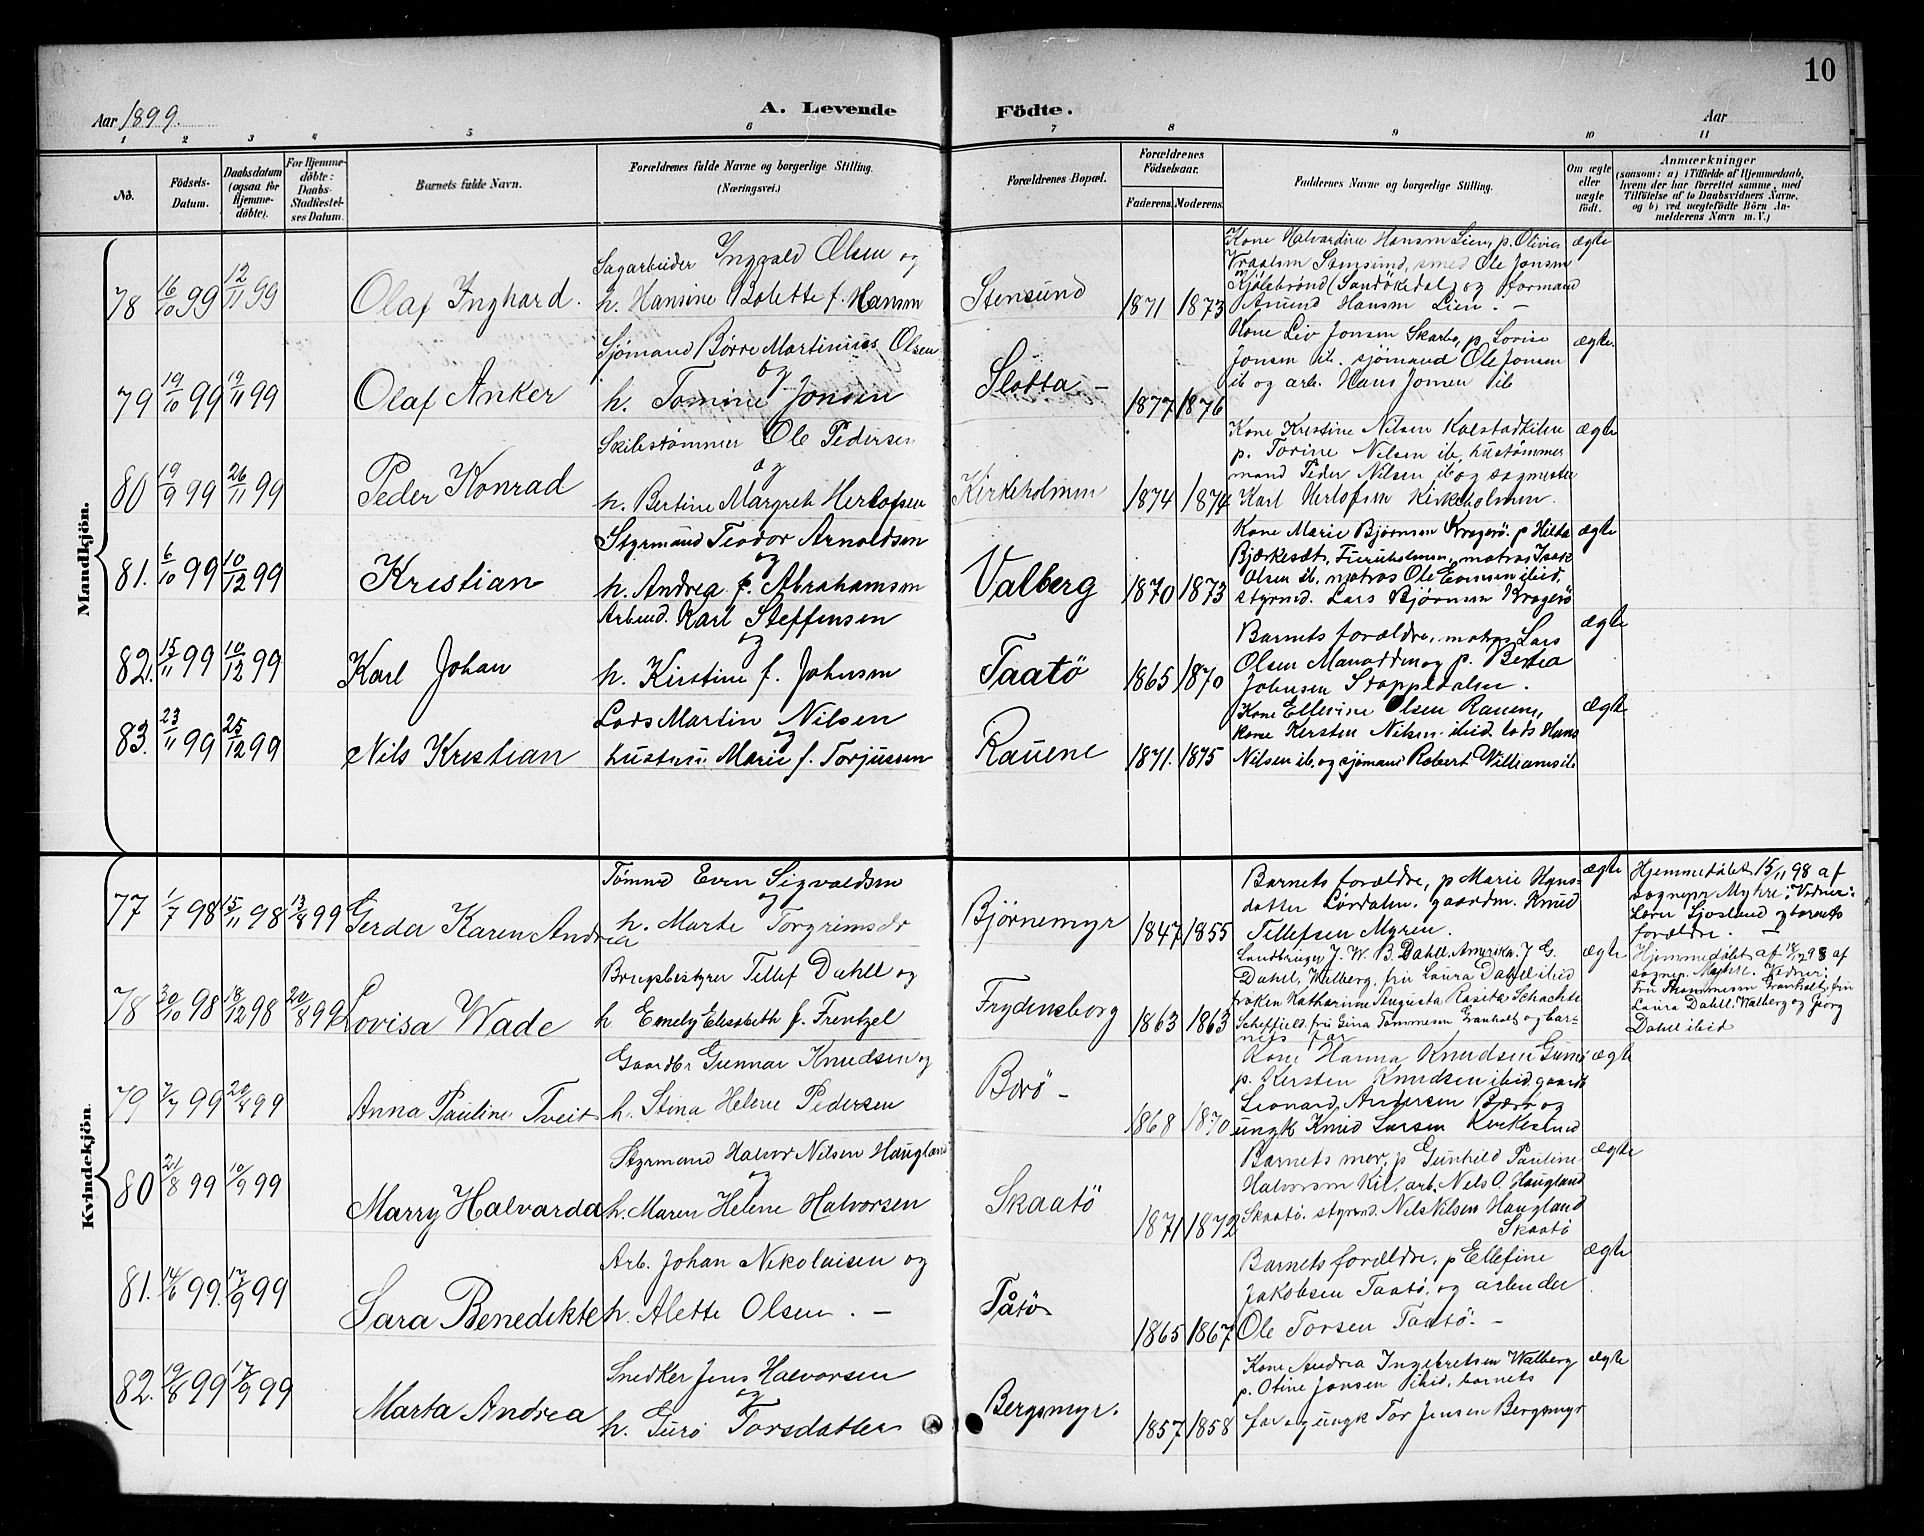 10
Aar 1899.
A. Levende
Födte.
Aar
1 2 3 4 5 6 7 8 9 10 11
No.
Födsels-Datum.
Daabsdatum (ogsaa for Hjemme-döbte).
For Hjemme-döbte: Daabs-Stadfæstel-ses Datum.
Barnets fulde Navn.
Forældrenes fulde Navne og borgerlige Stilling.
(Næringsvei.)
Forældrenes Bopæl.
Forældrenes Födselsaar.
Faderens. Moderens.
Faddernes Navne og borgerlige Stilling.
Om ægte eller uægte födt.
Anmærkninger
(saasom: a) i Tilfælde af Hjemmedaab,
hvem der har forrettet samme, med
Tilföielse af to Daabsvidners Navne,
og b) ved uægtefödte Börn An-
melderens Navn m. V.)
Mandkjön.
78 16/10 99 12/11 99
Olaf Inghard.
Sagarbeider Inggald Olsen og
h. Hansine Bolette f. Hansen
Stensund
1871 1873
Kone Halvardine Hansen Lien, p. Olivia
Vraalsen Stensund, smed Ole Jonsen
Kjølebrønd (Sandøkedal) og formand
Amund Hansen Lien. -
ægte
79 19/10 99 19/11 99
Olaf Anker
Sjömand Börre Martinius Olsen
og
h. Tomine Jonsen
Slotta -
1877 1876
Kone Liv Jonsen Skarbo, p. Lovise
Jonsen ib. sjömand Ole Jonsen
ib og arb. Hans Jonsen ib
ægte.
80 19/9 99 26/11 99
Peder Konrad
Skibstømmer Ole Pedersen
og
h. Bertine Margrete Herlofsen
Kirkeholmen
1874 1874
Kone Kristine Nilsen Kalstadkilen
p. Torine Nilsen ib, hustømmer
mand Peder Nilsen ib og sagmester
Karl Herlofsen Kirkeholmen.
ægte
81. 6/10 99 10/12 99
Kristian
Styrmand Teodor Arnoldsen
og
h. Andrea f. Abrahamsen
Valberg
1870 1873
Kone Marie Bjørnsen Kragerö. p Hilda
Bjærkesæt, Furuholmen, matros Isak
Olsen ib, matros Ole Evensen ibid,
styrmd. Lars Bjørnsen Kragerö
ægte
82. 15/11 99 10/12 99
Karl Johan
Arbeid. Karl Steffensen
og
h. Kirstine f. Johnsen
Taatö
1865 1870
Barnets forældre, matros Lars
Olsen og p. Bertea
Johnsen Stoppedalen.
ægte
83. 23/11 99 25/12 99
Nils Kristian
Lods Martin Nilsen
og
hustru Marie f. Torjussen
Rauene
1871. 1875
Kone Ellevine Olsen Rauene,
kone Kersten Nilsen ibid. lods Hans
Nilsen ib, og sjömand Robert Williams ib
ægte
Kvindekjön.
77 1/7 98 15/11 98 13/8 99
Gerda Karen Andrea
Tømmd Even Sigvaldsen
og
h. Marte Torgrimsdr
Bjørnemyr
1847 1855
Barnets forældre, p Marie Hans-
datter Lördalen, gaardm. Knud
Tellefsen Myren.
ægte
Hjemmedøbt 15/11 98 af
sognepr Myhre. Vidner:
Lærer Sjøslund og barnets
forældre. -
78 30/10 98 18/12 98 20/8 99
Lovisa Wade
Brugsbestyrer Tellef Dahll og
h Emely Elisabeth f. Frentzel
Frydensborg
1863 1863
Landbruger J. W. B. Dahll, Amerika. J G.
Dahll, Walberg, fru Laura Dahll ibid
frøken Katharine Augusta Rosita Schachte
Scheffield. fru Gina Tommesen Granholt og bar-
nets far
ægte
Hjemmedøbt af 18/12 98 af
sognepr. Myhre. Vidner:
Fru Thommesen Granholt, fru
Laura Dahll, Walberg og Georg
Dahll ibid
79 2/7 99 20/8 99
Anna Pauline Tveit
Gaardbr Gunnar Knudsen og
h. Stina Helene Pedersen
Borö -
1868 1870
Kone Hanna Knudsen
p. Kersten Knudsen ibid. gaardb
Leonard Andersen Bærö og
ungk Knud Larsen Kirkesund
ægte
80 21/8 99 10/9 99
Marry Halvarda
Styrmand Halvor Nilsen Haugland
og
h. Maren Helene Halvorsen
Skaatö
1871 1872
Barnets mor, p Gunhild Pauline
Halvorsen Kil, arb. Nels O. Haugland
Skaatö. styrmd. Nils Nilsen Haugland
Skaatö
ægte
81. 14/6 99. 17/9 99
Sara Benedikte
Arb. Johan Nikolaisen og
h. Alette Olsen. -
Tåtö
1865 1867
Barnets forældre, p Ellefine
Jakobsen Taatö, og arbeider
Ole Torsen Taatö. -
ægte
82. 19/8 99 17/9 99
Marta Andrea
Snedker Jens Halvorsen
og
h. Guro Torsdatter
Bergsmyr.
1857 1858
Kone Andrea Ingebretsen Walberg
p. Otine Jonsen ibid, barnets
far og ungk Tor Jensen Bergsmyr
ægte